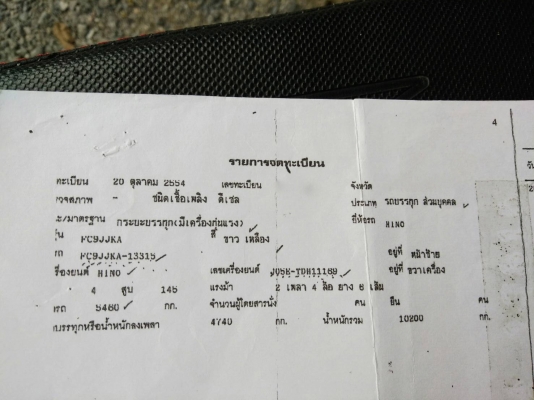 4
รายการจดทะเบียน
ทะเบียน 20 ตุลาคม 2554 เลขทะเบียน จังหวัด
สภาพ - ชนิดเชื้อเพลิง ดีเซล ประเภท รถบรรทุก ส่วนบุคคล
/มาตรฐาน กระบะบรรทุก(มีเครื่องทุ่นแรง) ยี่ห้อรถ HINO
FC9JJKA สี ขาว เหลือง
รถ FC9JJKA-13315 อยู่ที่ หน้าซ้าย
เครื่องยนต์ HINO เลขเครื่องยนต์ J05E-TDH11169 อยู่ที่ ขวาเครื่อง
4 สูบ 145 แรงม้า 2 เพลา 4 ล้อ ยาง 6 เส้น
รถ 5460 กก. จำนวนผู้โดยสารนั่ง คน ยืน คน
บรรทุกหรือน้ำหนักลงเพลา 4740 กก. น้ำหนักรวม 10200 กก.